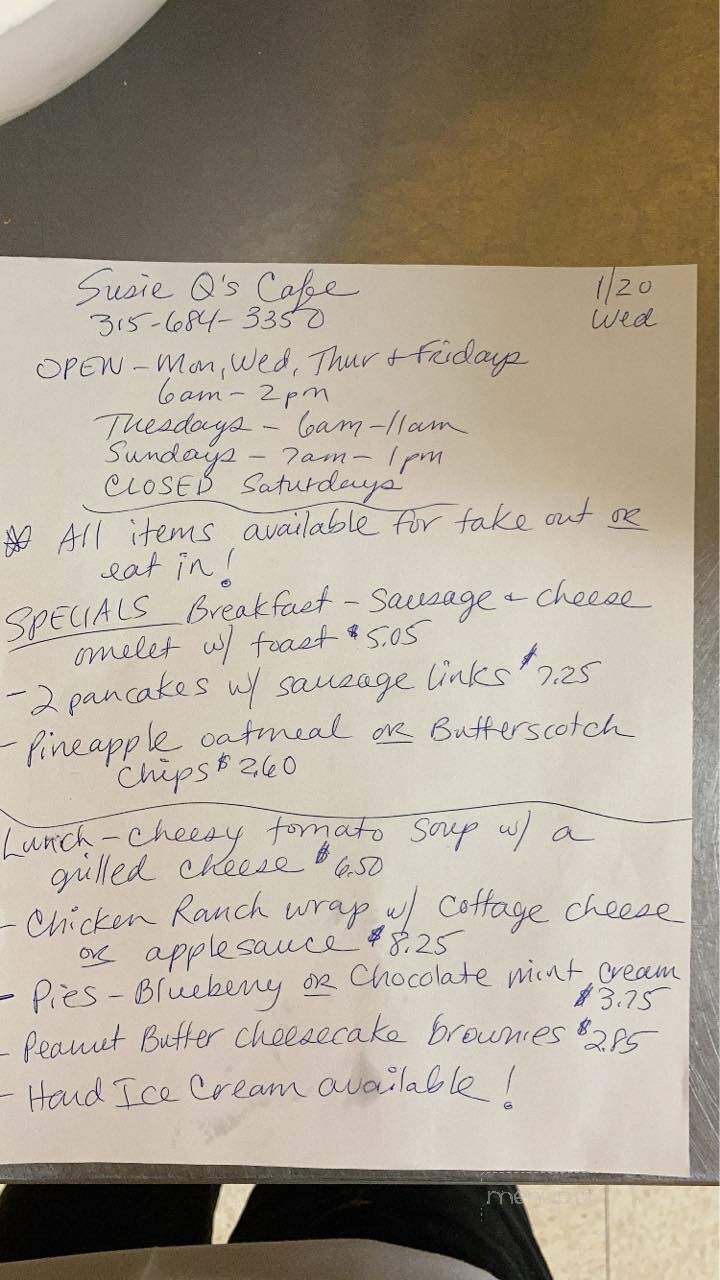 Susie Q's Cafe
1/20
315-684-3350
Wed
OPEN - Mon, Wed, Thur + Fridays
6am - 2pm
Tuesdays - 6am - 11am
Sundays - 7am - 1pm
CLOSED Saturdays
All items available for take out or
eat in!
SPECIALS Breakfast - Sausage + cheese
omelet w/ toast $5.05
- 2 pancakes w/ sausage links $7.25
- Pineapple oatmeal or Butterscotch
Chips $2.60
Lunch - Cheesy tomato Soup w/ a
grilled cheese $6.50
- Chicken Ranch wrap w/ Cottage cheese
or applesauce $8.25
- Pies - Blueberry or Chocolate mint cream
$3.75
- Peanut Butter cheesecake brownies $2.85
- Hard Ice Cream available!